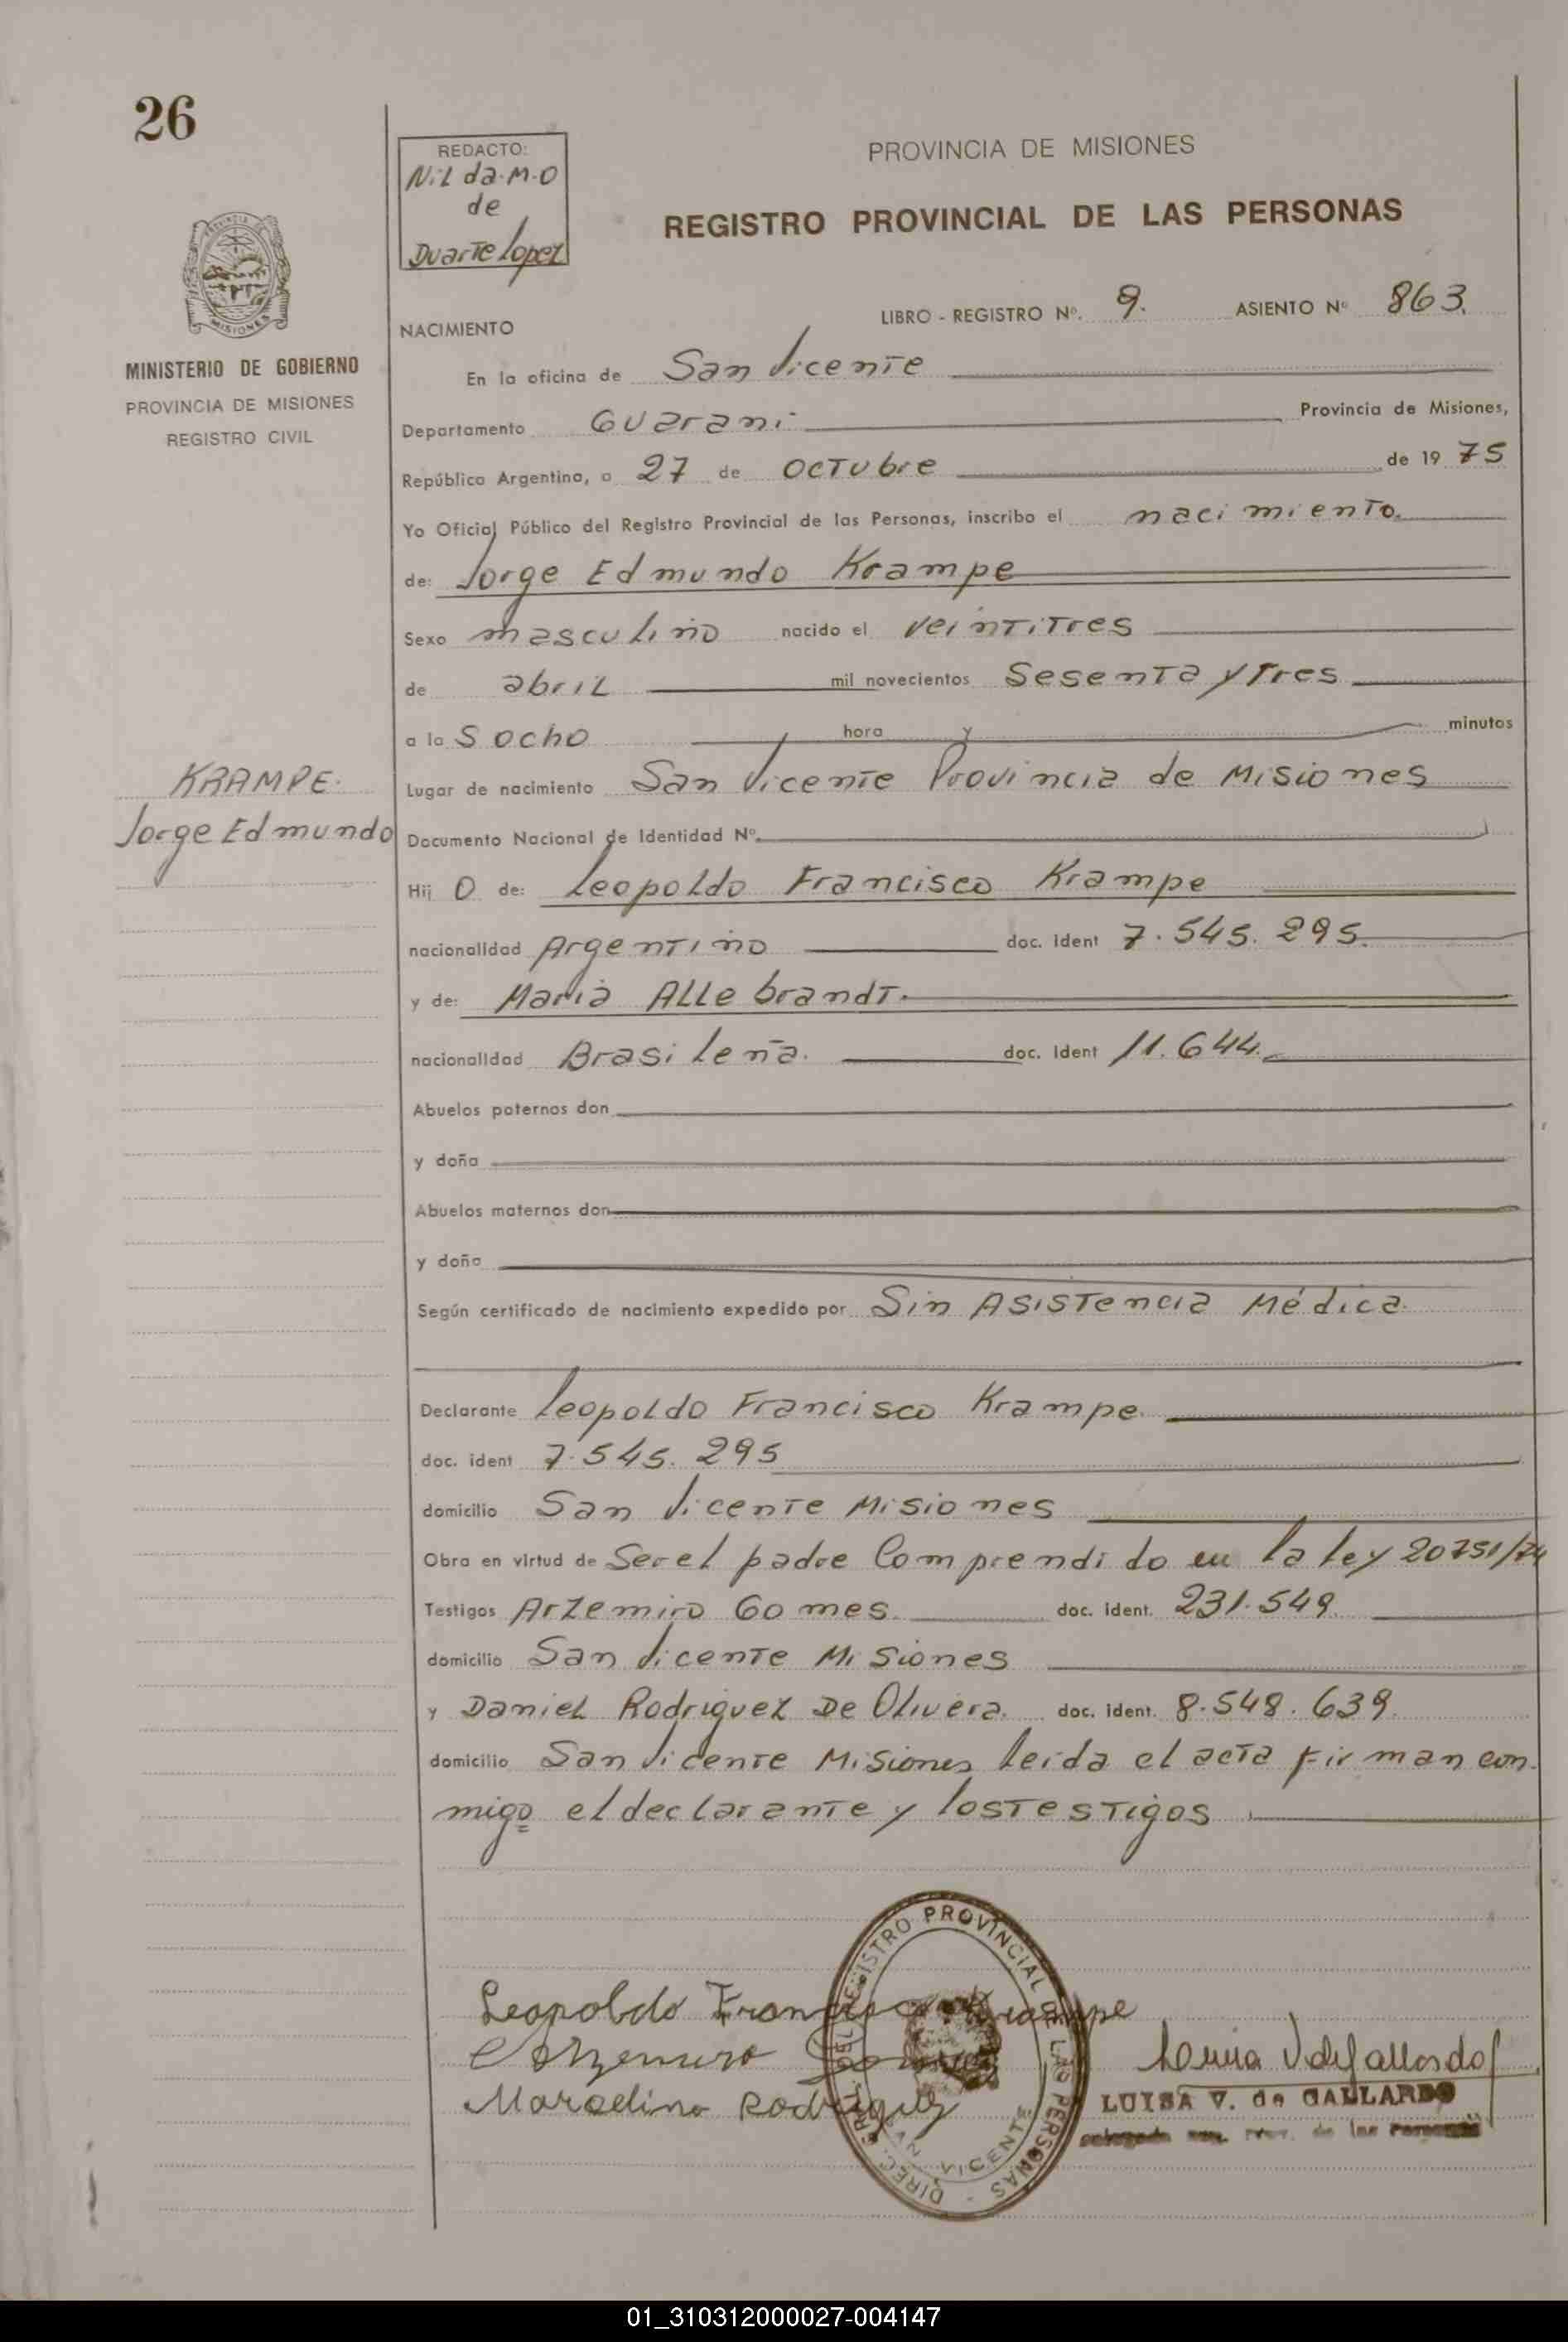 26
REDACTO:
Nilda.M.O
de
Duarte Lopez
PROVINCIA DE MISIONES
REGISTRO PROVINCIAL DE LAS PERSONAS
PROVINCIA
MISIONES
MINISTERIO DE GOBIERNO
PROVINCIA DE MISIONES
REGISTRO CIVIL
LIBRO - REGISTRO Nº. 9. ASIENTO Nº 863.
NACIMIENTO
En la oficina de San Vicente
Departamento Guarani Provincia de Misiones,
República Argentina, a 27 de octubre de 19 75
Yo Oficial Público del Registro Provincial de las Personas, inscribo el nacimiento.
de: Jorge Edmundo Krampe
Sexo masculino nacido el veintitres
de abril mil novecientos Sesenta y tres
a la s ocho hora y minutos
Lugar de nacimiento San Vicente Provincia de Misiones
KRAMPE.
Jorge Edmundo
Documento Nacional de Identidad Nº.
Hij o de: Leopoldo Francisco Krampe
nacionalidad Argentino doc. ident 7.545.295.
y de: Maria Allebrandt.
nacionalidad Brasileña. doc. ident 11.644.
Abuelos paternos don
y doña
Abuelos maternos don
y doña
Según certificado de nacimiento expedido por Sin Asistencia Médica.
Declarante Leopoldo Francisco Krampe.
doc. ident 7.545.295
domicilio San Vicente Misiones
Obra en virtud de Ser el padre Comprendido en la Ley 20751/74
Testigos Arzemiro Gomes. doc. ident. 231.549.
domicilio San Vicente Misiones
y Daniel Rodriguez De Olivera. doc. ident. 8.548.639.
domicilio San Vicente Misiones leida el acta firman con
migo el declarante y los testigos
Leopoldo Francisco Krampe
Arzemiro Gomes
Marcelino Rodriguez
DIREC. GRAL. DEL REGISTRO PROVINCIAL DE LAS PERSONAS -
SAN VICENTE
Luisa V de Gallardo
LUISA V. de GALLARDO
de las Personas
01_310312000027-004147